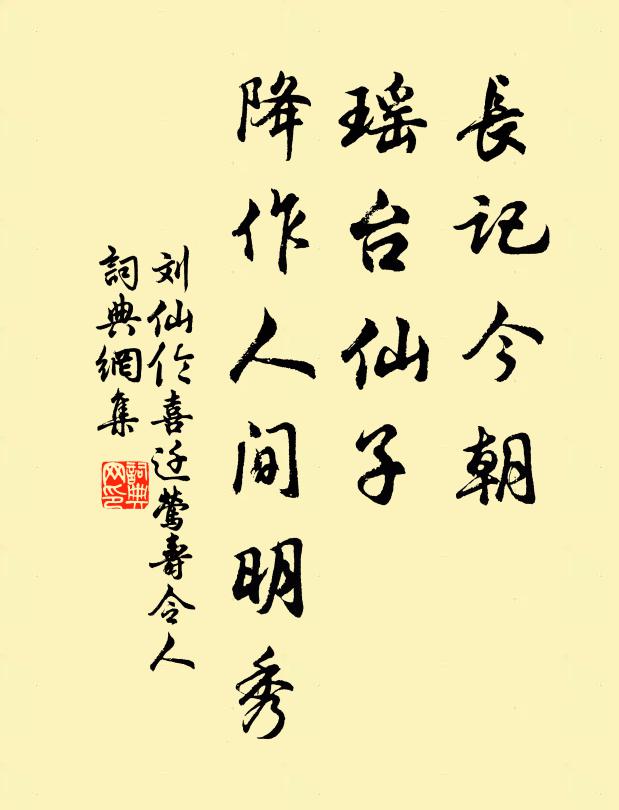 長记今朝
瑶台仙子
降作人间明秀
刘仙伦喜迁莺壽令人
詞典網集
詞典网印